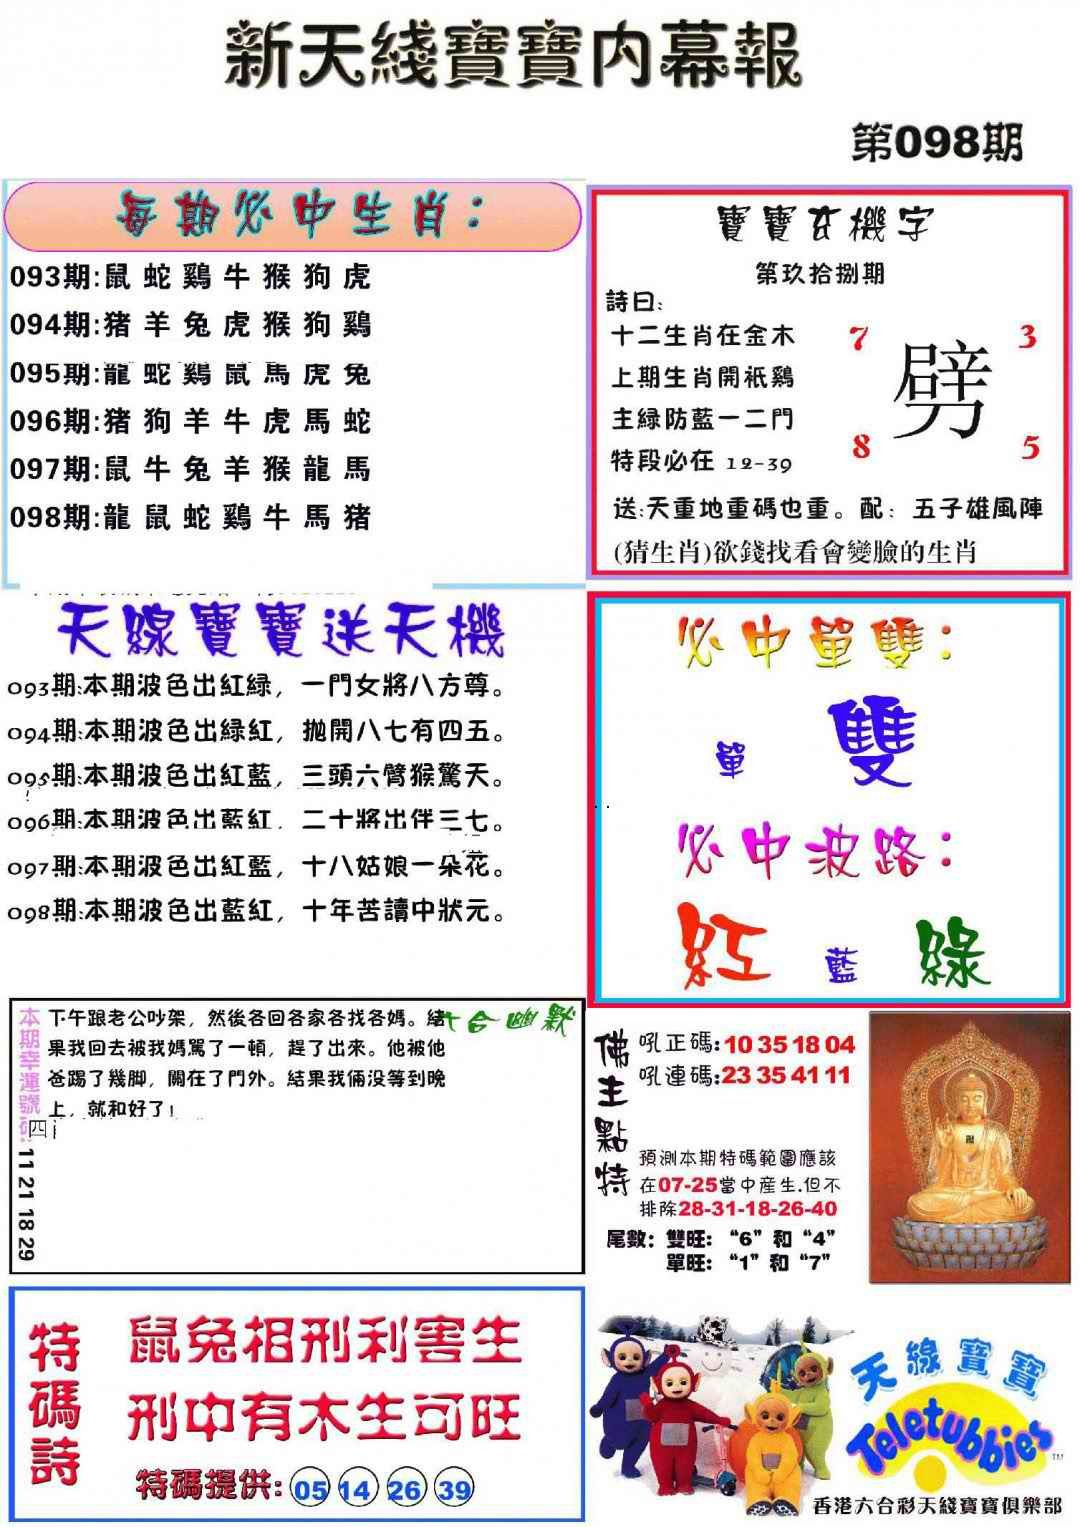 新天綫寶寶内幕報
第098期
每期必中生肖：
093期:鼠 蛇 鷄 牛 猴 狗 虎
094期:猪 羊 兔 虎 猴 狗 鷄
095期:龍 蛇 鷄 鼠 馬 虎 兔
096期:猪 狗 羊 牛 虎 馬 蛇
097期:鼠 牛 兔 羊 猴 龍 馬
098期:龍 鼠 蛇 鷄 牛 馬 猪
寶寶玄機字
第玖拾捌期
詩曰:
十二生肖在金木
上期生肖開祇鷄
主緑防藍一二門
特段必在 12-39
7 3
劈
8 5
送:天重地重碼也重。配：五子雄風陣
(猜生肖)欲錢找看會變臉的生肖
天線寶寶送天機
093期:本期波色出紅緑，一門女將八方尊。
094期:本期波色出緑紅，抛開八七有四五。
095期:本期波色出紅藍，三頭六臂猴驚天。
096期:本期波色出藍紅，二十將出伴三七。
097期:本期波色出紅藍，十八姑娘一朵花。
098期:本期波色出藍紅，十年苦讀中狀元。
必中單雙：
單 雙
必中波路：
紅 藍 綠
本期幸運號碼: 11 21 18 29
六合幽默
下午跟老公吵架，然後各回各家各找各媽。結
果我回去被我媽駡了一頓，趕了出來。他被他
爸踢了幾脚，關在了門外。結果我倆没等到晚
上，就和好了！
四
佛主點特
吼正碼:10 35 18 04
吼連碼:23 35 41 11
預測本期特碼範圍應該
在07-25當中産生.但不
排除28-31-18-26-40
尾數：雙旺：“6”和“4”
單旺：“1”和“7”
特碼詩
鼠兔相刑利害生
刑中有木生可旺
特碼提供: 05 14 26 39
天線寶寶
Teletubbies™
香港六合彩天綫寶寶俱樂部